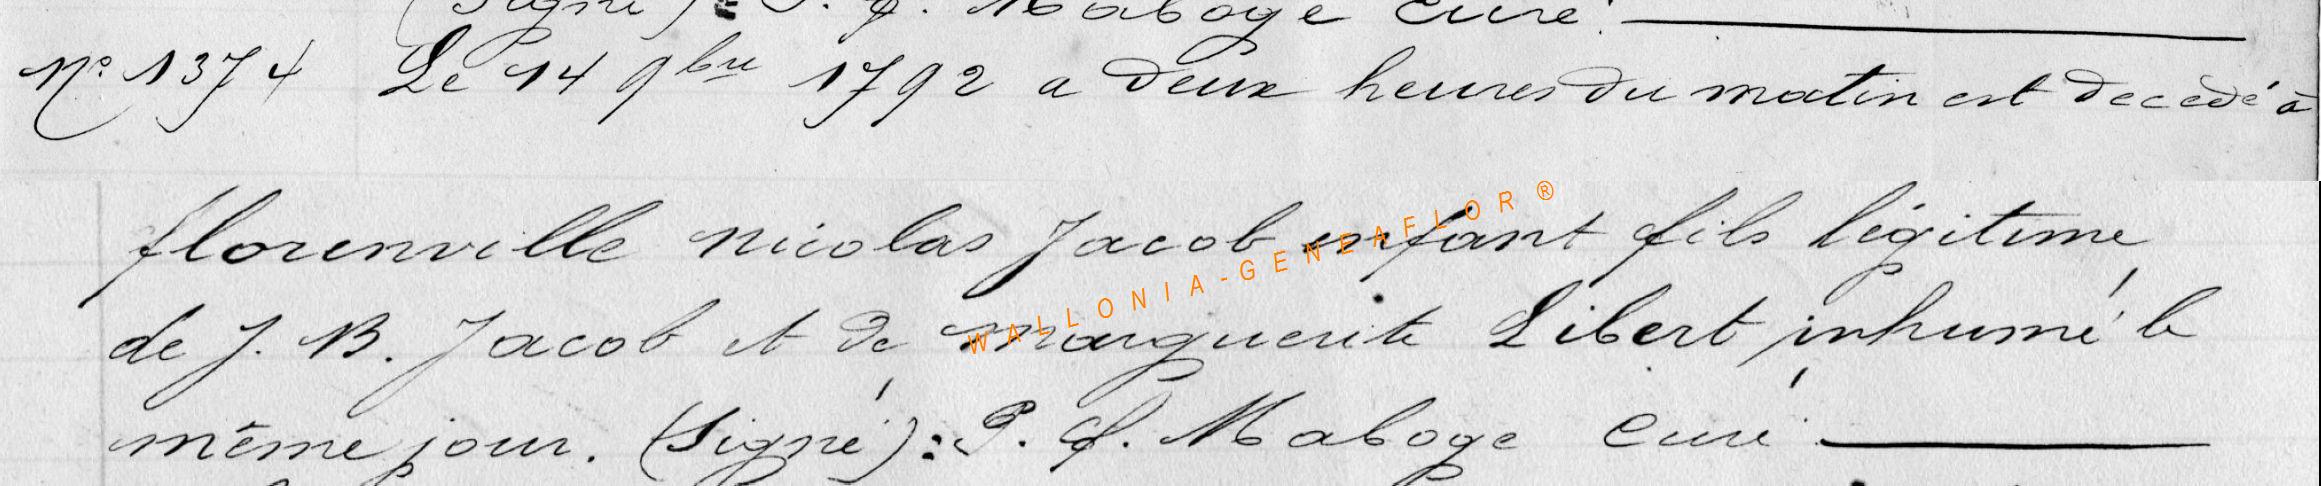 (Signé) : P. f. Maboge Curé.
N° 1374 Le 14 9bre 1792 a deux heures du matin est decedé à
florenville nicolas Jacob enfant fils légitime
de J. B. Jacob et de marguerite Libert, inhumé le
même jour. (Signé) : P. f. Maboge Curé
WALLONIA-GENEAFLOR ®